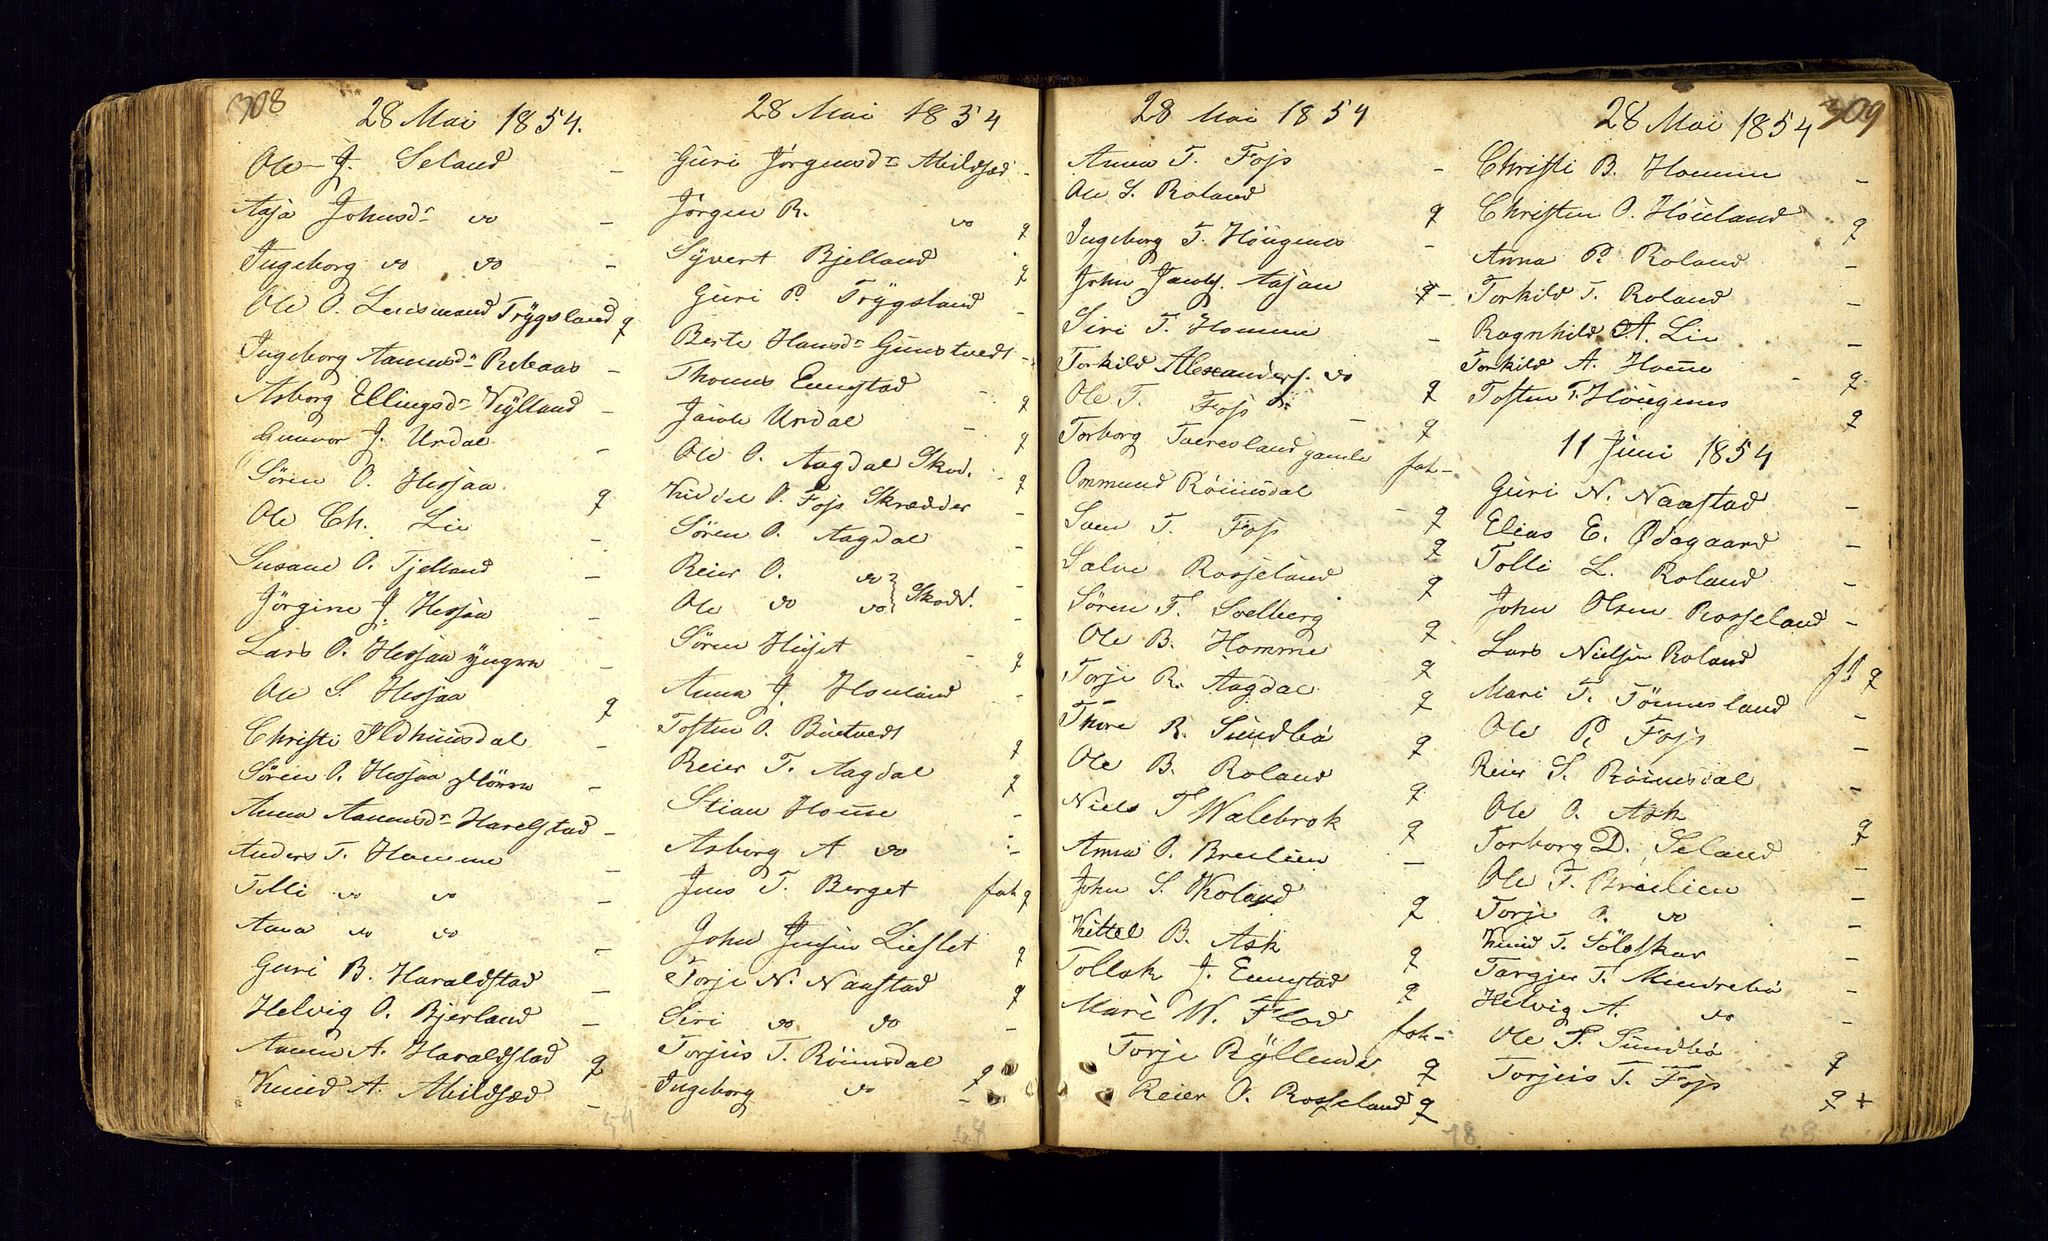 308
28 Mai 1854.
Ole J. Seland -
Aasa Johnsd. do -
Ingeborg do do -
Ole O. Lensmand Trÿgsland q
Ingeborg Aanensd. -
Asborg Ellingsd. Vÿlland -
Gunvor J. Urdal -
Sören O. Hessaa q
Ole Ch. Lie -
Susane O. Tjelland -
Jörgine J. Hessaa -
Lars O. Hessaa ÿngre -
Ole S. Hessaa q
Christi Ildhuusdal -
Sören O. Hessaa större -
Anna Aanensd. Harelstad -
Anders T. Homme -
Tolli do do -
Anna do do -
Guri B. Haraldstad -
Helvig O. Bjerland -
Aanen A. Haraldstad q
Knud A. Mildsæd -
54
28 Mai 1854
Guri Jörgensd. Mildsæd -
Jörgen R. do q
Sÿvert Bjelland q
Guri P. Trÿgsland -
Berte Hansd. Gunstvedt -
Thomas Eunstad - q
Jacob Urdal - q
Ole O. Aagdal Skod. q
Kiddel O. Foss Skrædder -
Sören O. Aagdal -
Reier O. do -
Ole do do } Skodd. -
Sören Huset - q
Anna J. Houland -
Tosten O. Buntvedt q
Reier T. Aagdal q
Stian Homme -
Asborg A do -
Jens T. Berget fah q
John Jensen Lieslet q
Torje N. Naastad q
Siri do do -
Torjus T. Röinsdal q
Ingeborg do -
68
28 Mai 1854
Anna T. Foss -
Ole S. Roland q
Ingeborg T. Höugenes -
John Jacobs. Aasan q -
Siri T. Homme -
Torkild Alexanders. do q
Ole T. Foss - q
Torborg Tveresland gamle fah -
Ommund Röinsdal - q
Sven T. Foss q
Salve Rosseland q
Sören T. Solberg q
Ole B. Homme q
Torje R. Aagdal q
Thore R. Sundbö q
Ole B. Roland q
Niels T Walebrok q
Anna O. Breilien -
John S. Roland q
Kittel B. Ask q
Tollak J. Eunstad q
Mari W. Flod fah -
Torje Rÿllende q
Reier O. Rosseland q
78
309
28 Mai 1854
Christi B. Homme -
Christen O. Höiland q
Anna P. Roland -
Torkild T. Roland -
Ragnhild A. Lie -
Torkild A. Homme - q
Tosten T. Höugenes q
11 Juni 1854
Guri N. Naastad -
Elias E. Ødegaard -
Tolli L. Roland -
John Olsen Rosseland -
Lars Nielsen Roland q
Mari T. Tönnesland -
Ole P. Foss -
Reier S. Röinsdal -
Ole O. Ask q
Torborg D. Seland -
Ole T. Breilien -
Torje O. do -
Knud T. Sölvskar -
Targjer T. Mundrebö -
Helvig A. do -
Ole T. Sundbö q
Torjus T. Foss q +
58